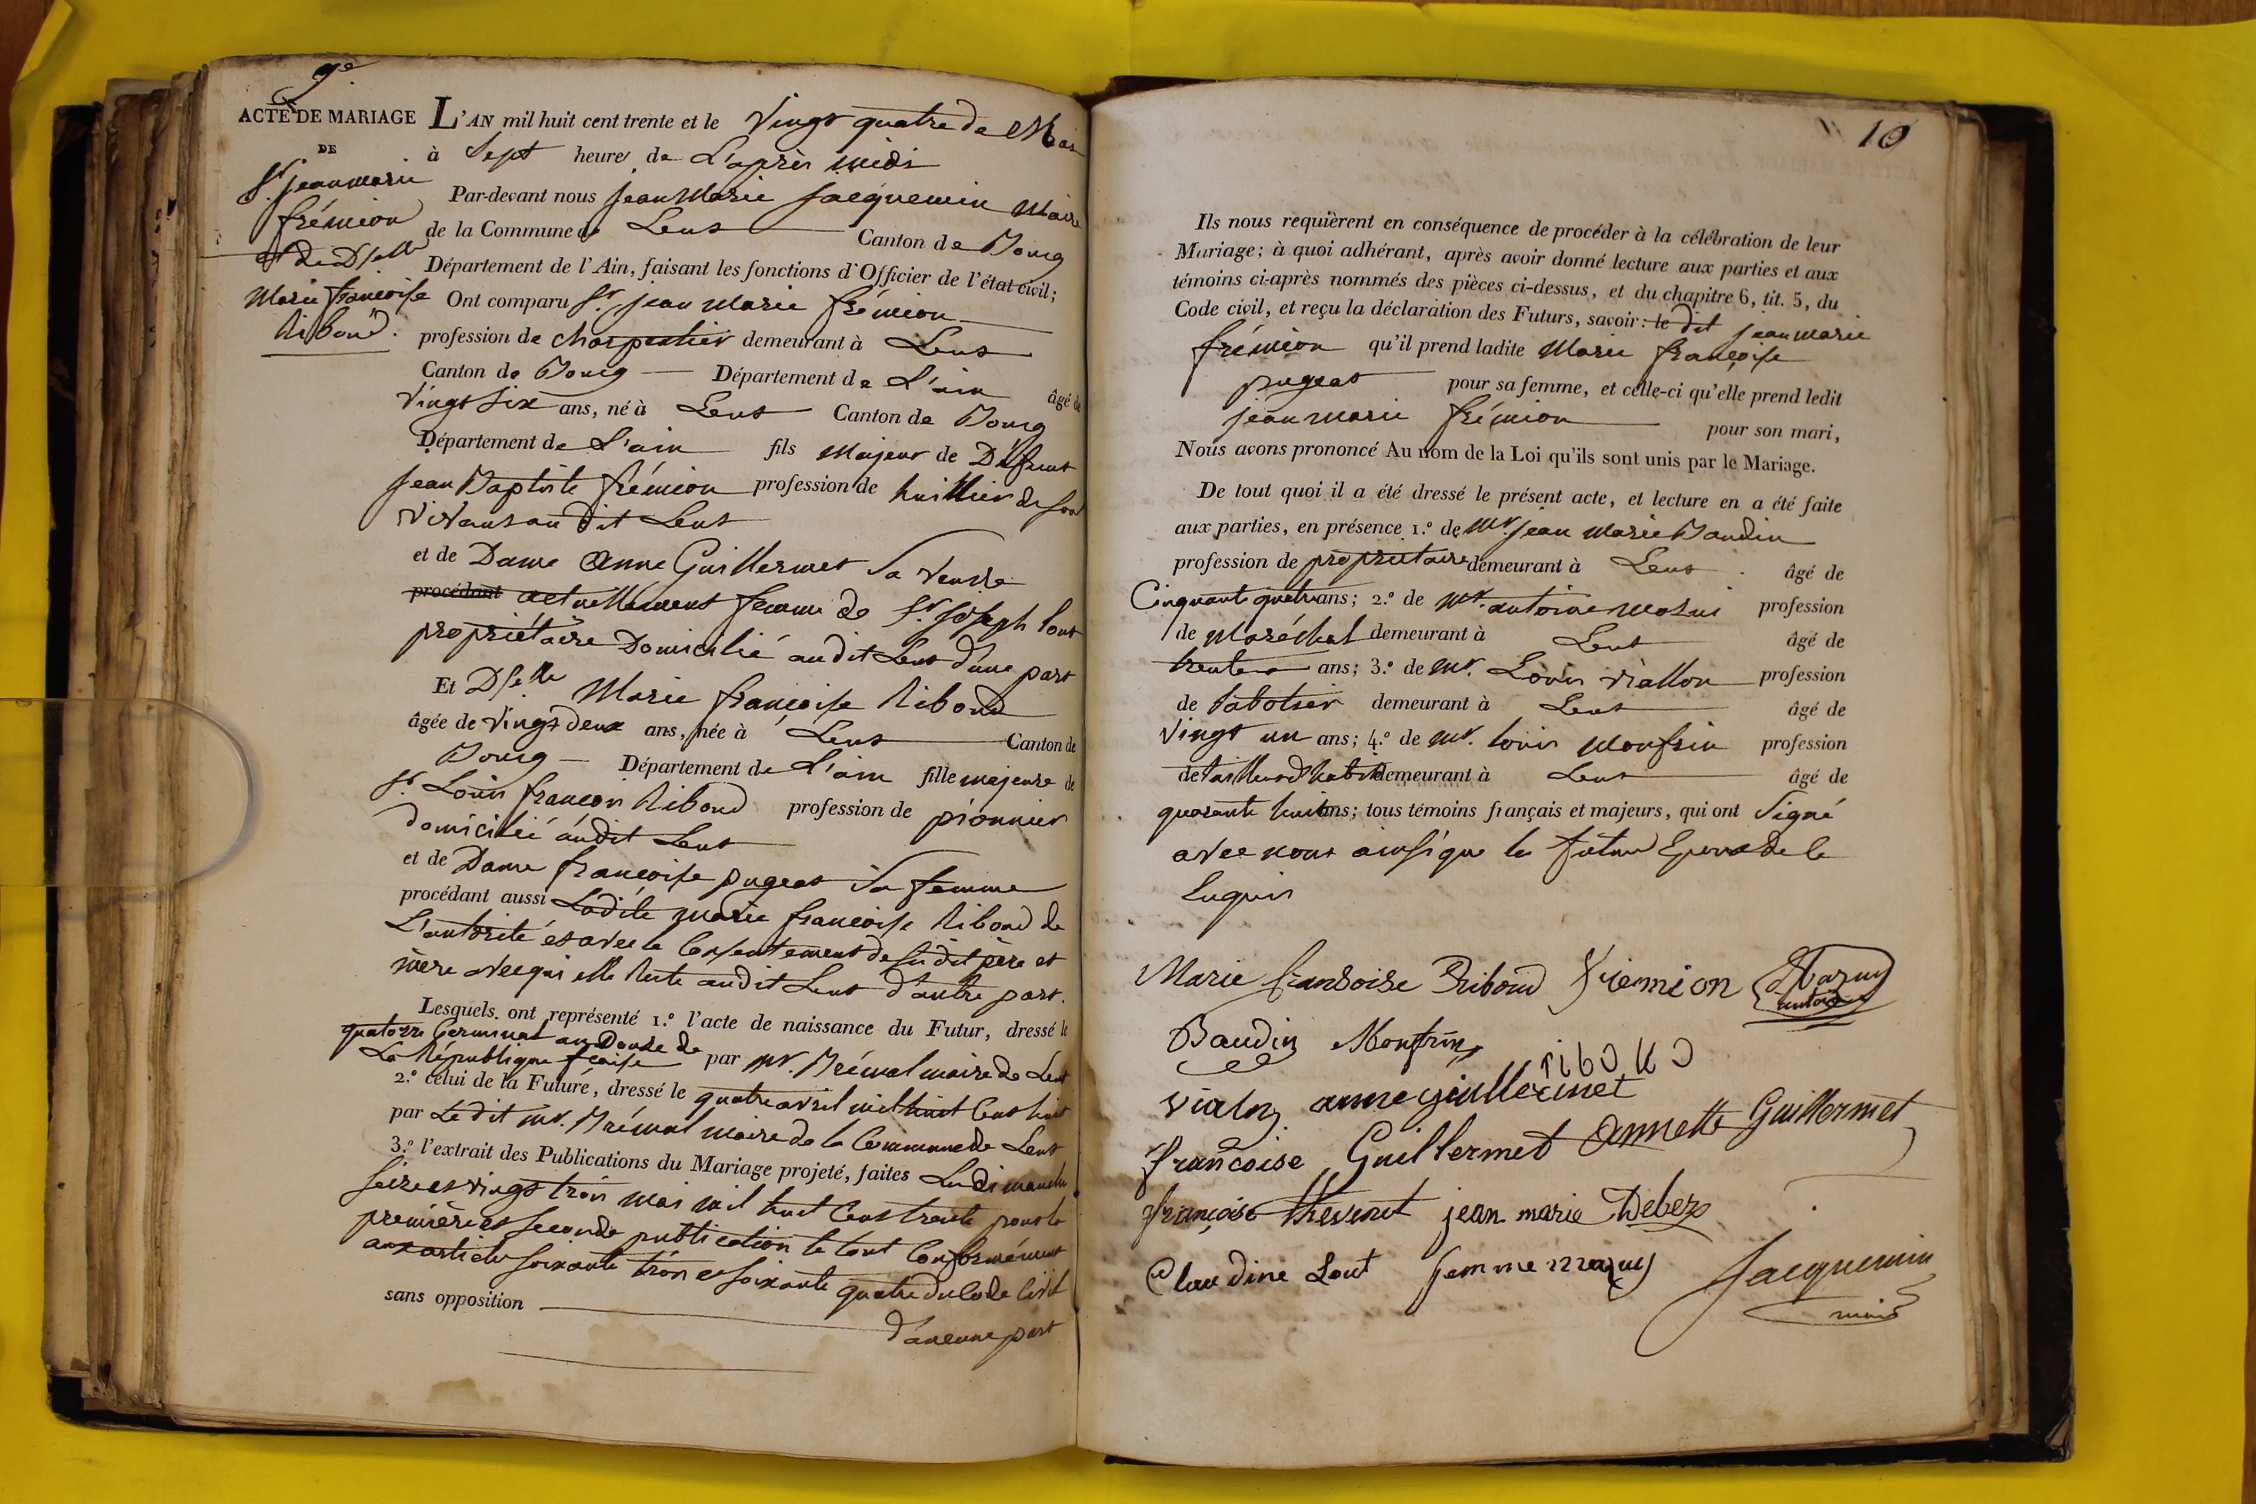 9e
ACTE DE MARIAGE
DE
Sr. jean marie
frémion
et de Dselle
Marie françoise
Riboud.
L'AN mil huit cent trente et le vingt quatre de Mai
à Sept heures de L'après midi
Par-devant nous jean Marie Jacquemin Maire
de la Commune de Lent Canton de Bourg
Département de l'Ain, faisant les fonctions d'Officier de l'état civil;
Ont comparu Sr. jean marie frémion
profession de charpentier demeurant à Lent
Canton de Bourg Département de L'ain âgé de
vingt six ans, né à Lent Canton de Bourg
Département de L'ain fils Majeur de Défunt
jean Baptiste frémion profession de huillier de son
vivant au dit Lent
et de Dame Anne Guillermet sa veuve
procédant actuellement femme de Sr. joseph Lout
propriétaire Domicilié au dit Lent d'une part
Et Dselle Marie françoise Riboud
âgée de vingt deux ans, née à Lent Canton de
Bourg Département de L'ain fille majeure de
Sr. Louis françois Riboud profession de pionnier
domicilié audit Lent
et de Dame françoise pugeat sa femme
procédant aussi Ladite marie françoise Riboud de
L'autorité et avec le Consentement de susdit père et
mère avec qui elle Reste audit Lent d'autre part.
Lesquels ont représenté 1.º l'acte de naissance du Futur, dressé le
quatorze Germinal an Douze de
La République fçaise par mr. Brémal maire de Lent
2.º celui de la Future, dressé le quatre avril mil huit Cent huit
par Le dit mr. Brémal maire de la Commune de Lent
3.º l'extrait des Publications du Mariage projeté, faites Les dimanche
seize et vingt trois mai mil huit Cent trente pour la
première et seconde publication le tout Conformément
aux articles soixante trois et soixante quatre du Code Civil
sans opposition d'aucune part
10
Ils nous requièrent en conséquence de procéder à la célébration de leur
Mariage; à quoi adhérant, après avoir donné lecture aux parties et aux
témoins ci-après nommés des pièces ci-dessus, et du chapitre 6, tit. 5, du
Code civil, et reçu la déclaration des Futurs, savoir: le dit jean marie
frémion qu'il prend ladite Marie françoise
pugeat pour sa femme, et celle-ci qu'elle prend ledit
jean marie frémion pour son mari,
Nous avons prononcé Au nom de la Loi qu'ils sont unis par le Mariage.
De tout quoi il a été dressé le présent acte, et lecture en a été faite
aux parties, en présence 1.º de Mr. jean Marie Baudin
profession de propriétaire demeurant à Lent âgé de
Cinquante quatre ans; 2.º de mr. antoine mazui profession
de Maréchal demeurant à Lent âgé de
trente ans; 3.º de mr. Louis viallon profession
de sabotier demeurant à Lent âgé de
vingt un ans; 4.º de mr. louis Monfrin profession
de tailleur d'habits demeurant à Lent âgé de
quarante huit ans; tous témoins français et majeurs, qui ont signé
avec nous ainsi que les futurs Epoux de ce
Enquis
Marie fransoise Riboud fremion Mazuy
antoine
Baudin Monfrin
riboud
vialon anne guillermet
françoise Guillermet Annette Guillermet
françoise thevenet jean marie Debez
Claudine Lout femme mazuy
Jacquemin
maire